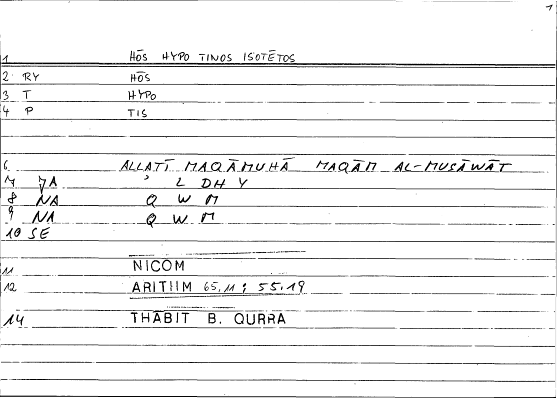 1
1 HŌS HYPO TINOS ISOTĒTOS
2 RY HŌS
3 T HYPO
4 P TIS
6 ALLATĪ MAQĀMUHĀ MAQĀM AL-MUSĀWĀT
7 JA ' L DH Y
8 NA Q W M
9 NA Q W M
10 SE
11 NICOM
12 ARITHM 65,11 ; 55,19
14 THĀBIT B. QURRA